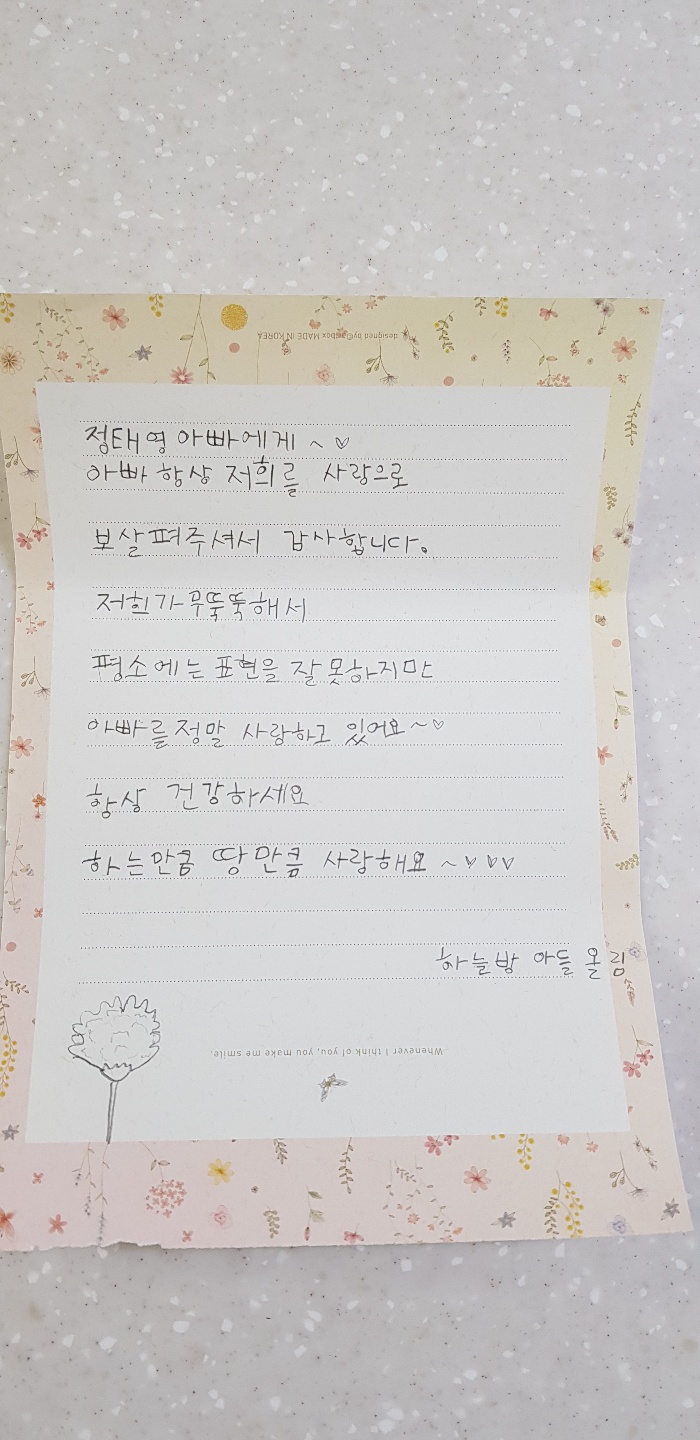 designed by
box MADE IN KOREA
정태영 아빠에게 ~ ♡
아빠 항상 저희를 사랑으로
보살펴주셔서 감사합니다.
저희가 무뚝뚝해서
평소에는 표현을 잘 못하지만
아빠를 정말 사랑하고 있어요~♡
항상 건강하세요
하는만큼 땅만큼 사랑해요 ~♡♡♡
하늘방 아들 올림
Whenever I think of you, you make me smile.